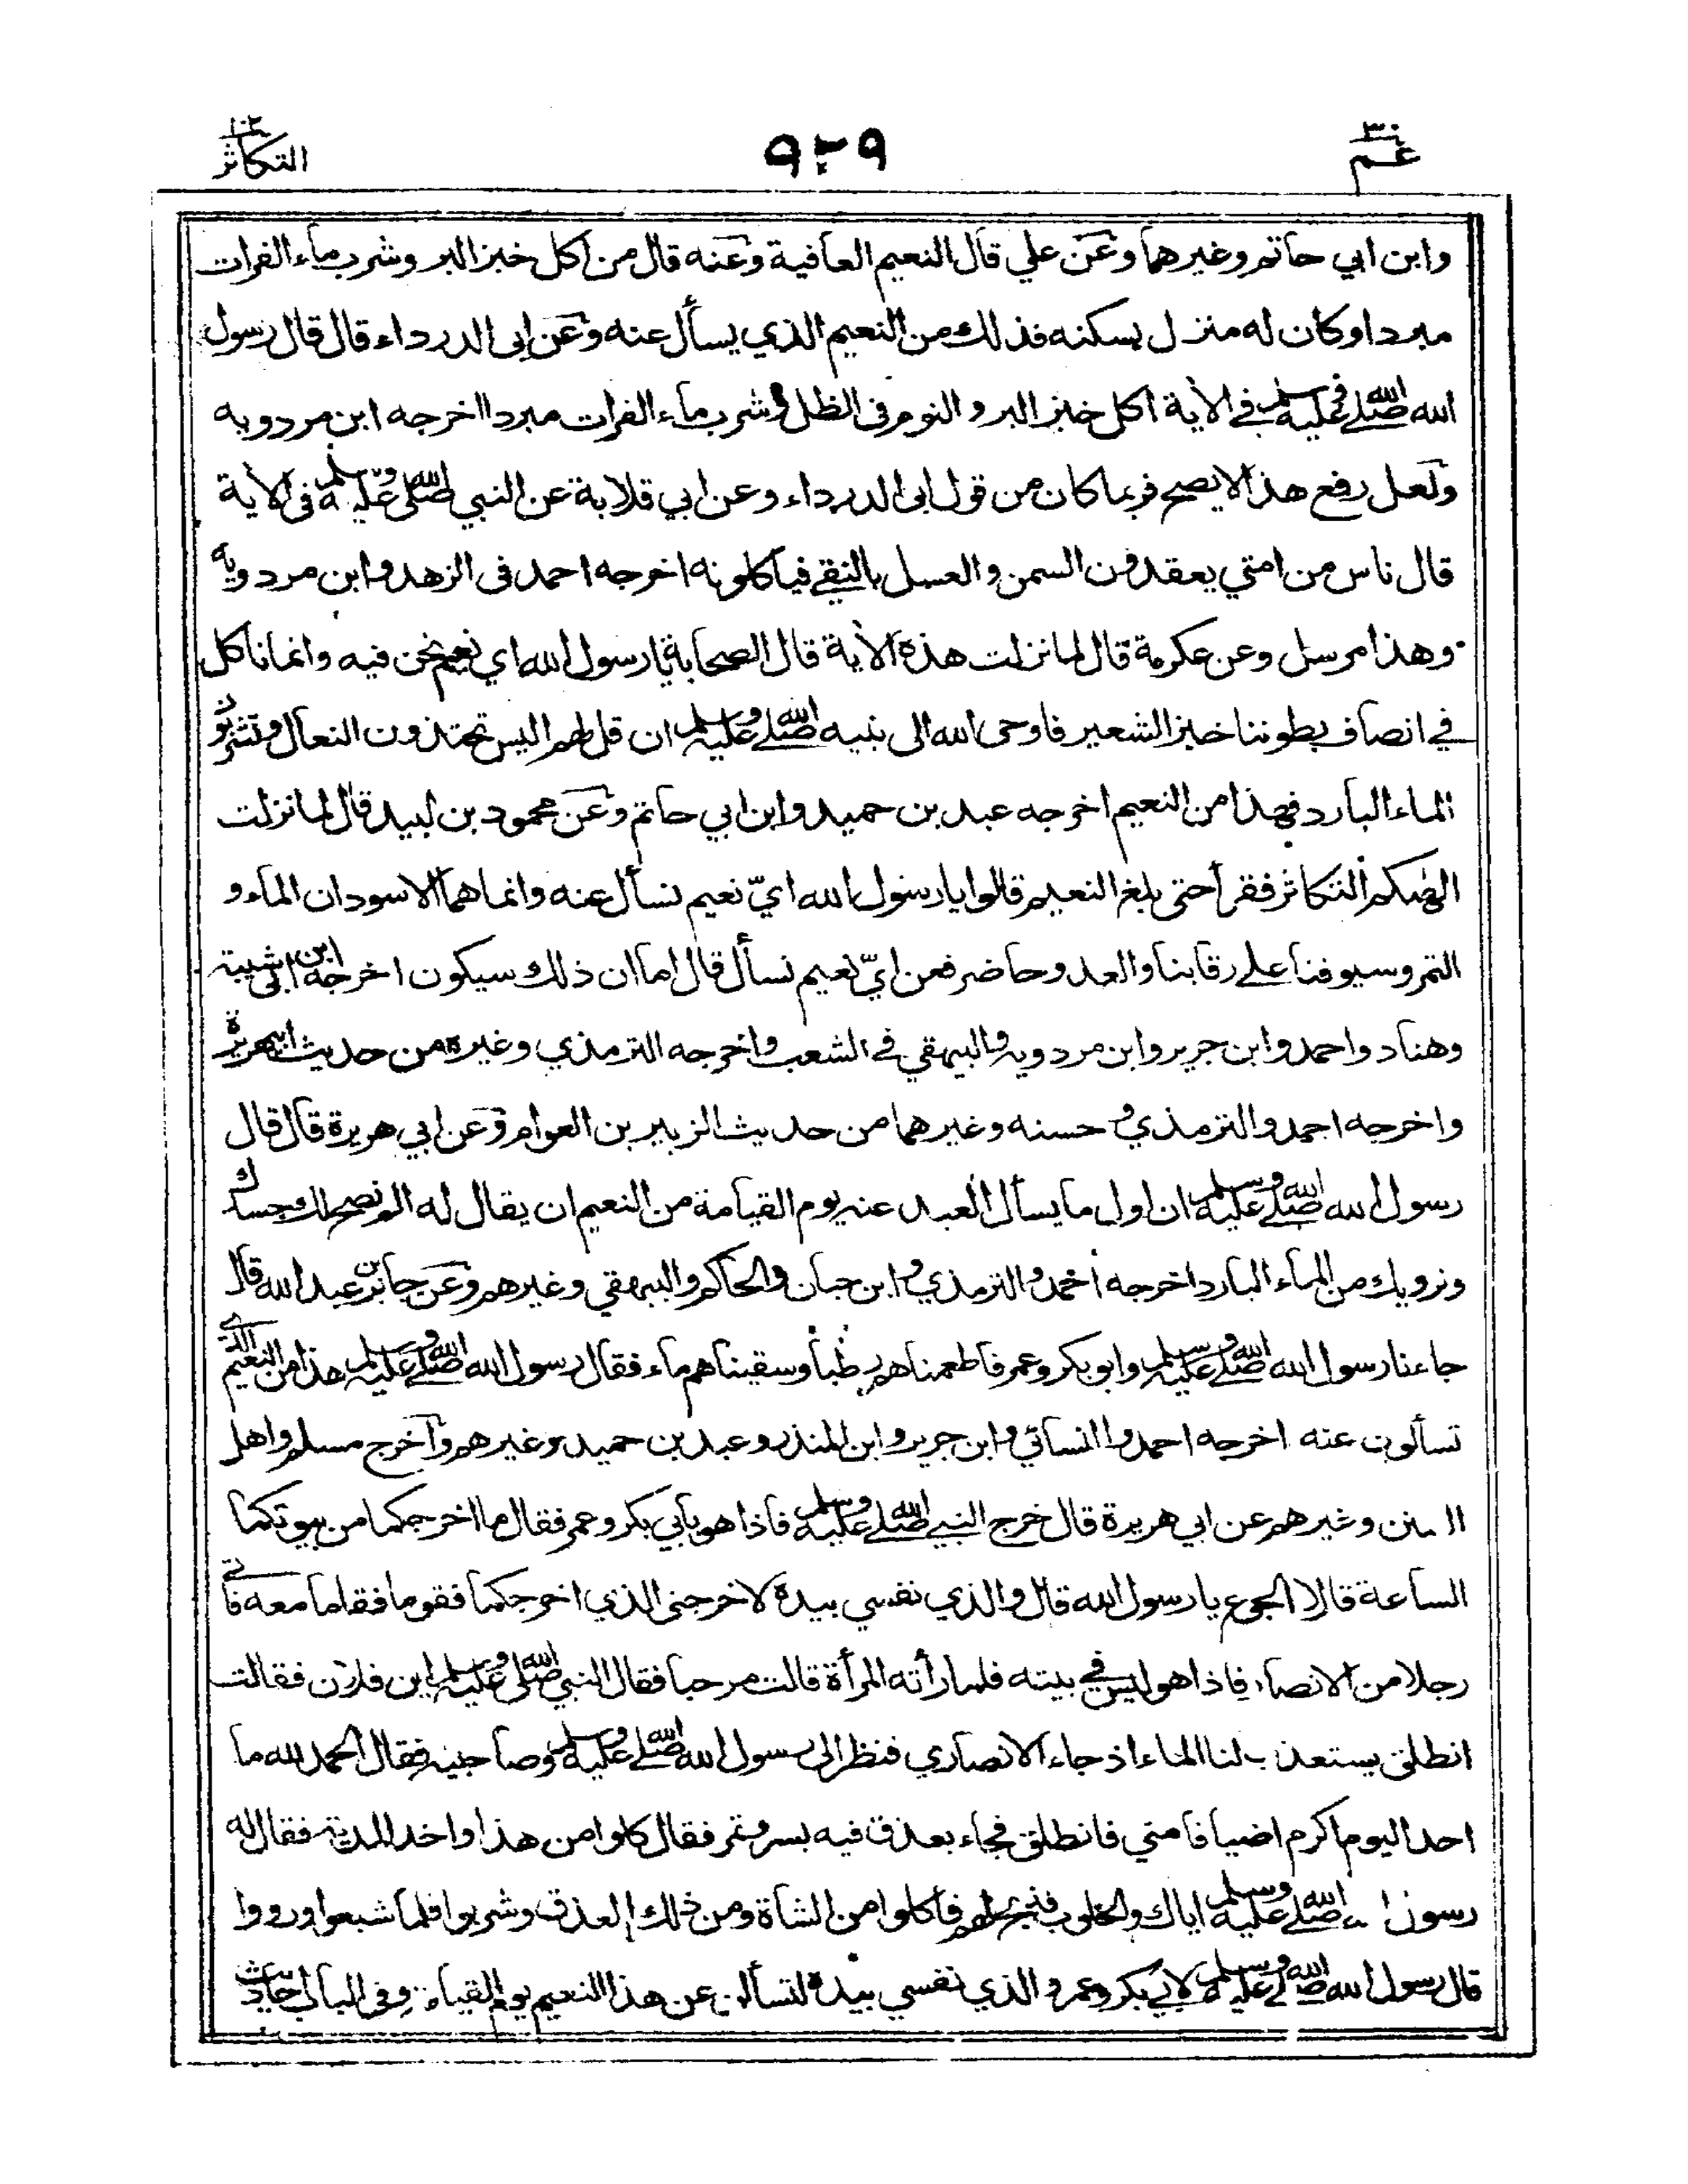 ٣٠
عم
٩٢٩
١٠٢
التكاثر
وابن ابي حاتم وغيرهما وعن علي قال النعيم العافية وعنه قال من اكل خبز البر وشرب ماء الفرات
مبردا وكان له منزل يسكنه فذلك من النعيم الذي يسأل عنه وعن ابى الدرداء قال قال رسول
الله صلى الله عليه وسلم في الأية اكل خبز البر والنوم فى الظل وشرب ماء الفرات مبردا اخرجه ابن مردويه
ولعل رفع هذا لا يصح فربما كان من قول ابى الدرداء وعن ابي قلابة عن النبي صلى الله عليه وسلم فى الأية
قال ناس من امتي يعقدون السمن والعسل بالنقي فيأكلونه اخرجه احمد فى الزهد وابن مردويه
وهذا مرسل وعن عكرمة قال لما نزلت هذه الأية قال الصحابة يا رسول الله اي نعيم نحن فيه وانما نأكل
في انصاف بطوننا خبز الشعير فاوحى الله الى نبيه صلى الله عليه وسلم ان قل لهم اليس تحتذون النعال وتشربون
الماء البارد فهذا من النعيم اخرجه عبد بن حميد وابن ابي حاتم وعن محمود بن لبيد قال لما نزلت
الهٰكم التكاثر فقرأ حتى بلغ النعيم قالوا يا رسول الله ايّ نعيم نسأل عنه وانما هما الاسودان الماء و
التمر وسيوفنا على رقابنا والعدو حاضر فعن ايّ نعيم نسأل قال اما ان ذلك سيكون اخرجه ابن ابى شيبة
وهناد واحمد وابن جرير وابن مردويه والبيهقي في الشعب واخرجه الترمذي وغيره من حديث ابيهريرة
واخرجه احمد والترمذي وحسنه وغيرهما من حديث الزبير بن العوام وعن ابي هريرة قال قال
رسول الله صلى الله عليه وسلم ان اول ما يسأل العبد عنه يوم القيامة من النعيم ان يقال له الم نصح لك جسدك
ونرويك من الماء البارد اخرجه احمد والترمذي وابن حبان والحاكم والبيهقي وغيرهم وعن جابر بن عبد الله قال
جاءنا رسول الله صلى الله عليه وسلم وابو بكر وعمر فاطعمناهم رطبا وسقيناهم ماء فقال رسول الله صلى الله عليه وسلم هذا من النعيم الذي
تسألون عنه اخرجه احمد والنسائي وابن جرير وابن المنذر وعبد بن حميد وغيرهم وأخرج مسلم واهل
السنن وغيرهم عن ابي هريرة قال خرج النبي صلى الله عليه وسلم فاذا هو بأبي بكر وعمر فقال ما اخرجكما من بيوتكما
الساعة قالا الجوع يا رسول الله قال والذي نفسي بيده لاخرجنى الذي اخرجكما فقوما فقاما معه فأتى
رجلا من الانصار فاذا هو ليس في بيته فلما رأته المرأة قالت مرحبا فقال النبي صلى الله عليه وسلم اين فلان فقالت
انطلق يستعذب لنا الماء اذ جاء الانصاري فنظر الى رسول الله صلى الله عليه وسلم وصاحبيه فقال الحمد لله ما
احد اليوم اكرم اضيافا مني فانطلق فجاء بعذق فيه بسر وتمر فقال كلوا من هذا واخذ المدية فقال له
رسول الله صلى الله عليه وسلم اياك والحلوب فذبح لهم فأكلوا من الشاة ومن ذلك العذق وشربوا فلما شبعوا ورووا
قال رسول الله صلى الله عليه وسلم لابي بكر وعمر والذي نفسي بيده لتسألن عن هذا النعيم يوم القيامة وفى الباب احاديث